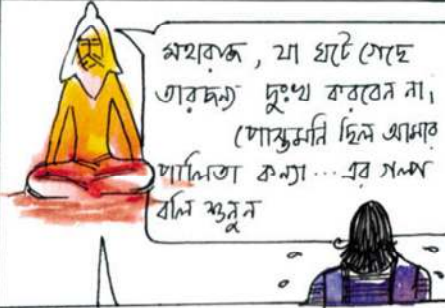 মহারাজ, যা ঘটে গেছে
তারজন্য দুঃখ করবেন না।
পোস্তমনি ছিল আমার
পালিতা কন্যা...এর গল্প
বলি শুনুন